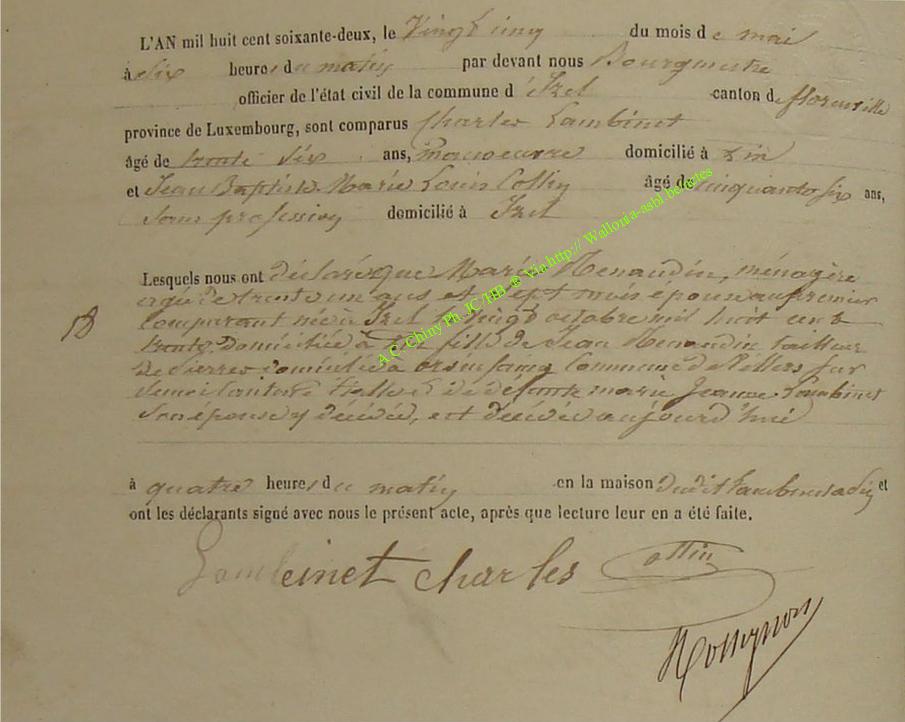 L'AN mil huit cent soixante-deux, le vingt cinq du mois de mai
à six heures du matin par devant nous Bourgmestre
officier de l'état civil de la commune d'Izel canton de florenville
province de Luxembourg, sont comparus Charles Lambinet
âgé de trente six ans, manoeuvre domicilié à
et Jean Baptiste Marie Louis Collin âgé de cinquante six ans,
sans profession domicilié à Izel
Lesquels nous ont déclaré que Marie Renaudin, ménagère
agée de trente un ans et sept mois épouse au premier
18
comparant née à Izel le vingt octobre mil huit cent
trente domiciliée à fille de Jean Renaudin tailleur
de pierres domicilié à orsinfaing Commune de Villers sur
Semois Canton d' et de défunte marie Jeanne Lambinet
son épouse y décédée, est décédée aujourd'hui
à quatre heures du matin en la maison dudit Lambinet et
ont les déclarants signé avec nous le présent acte, après que lecture leur en a été faite.
Lambinet charles Collin
Rossignon
A C - Chiny Ph. JC/HB @ Via http:// Wallonia-asbl.be/actes